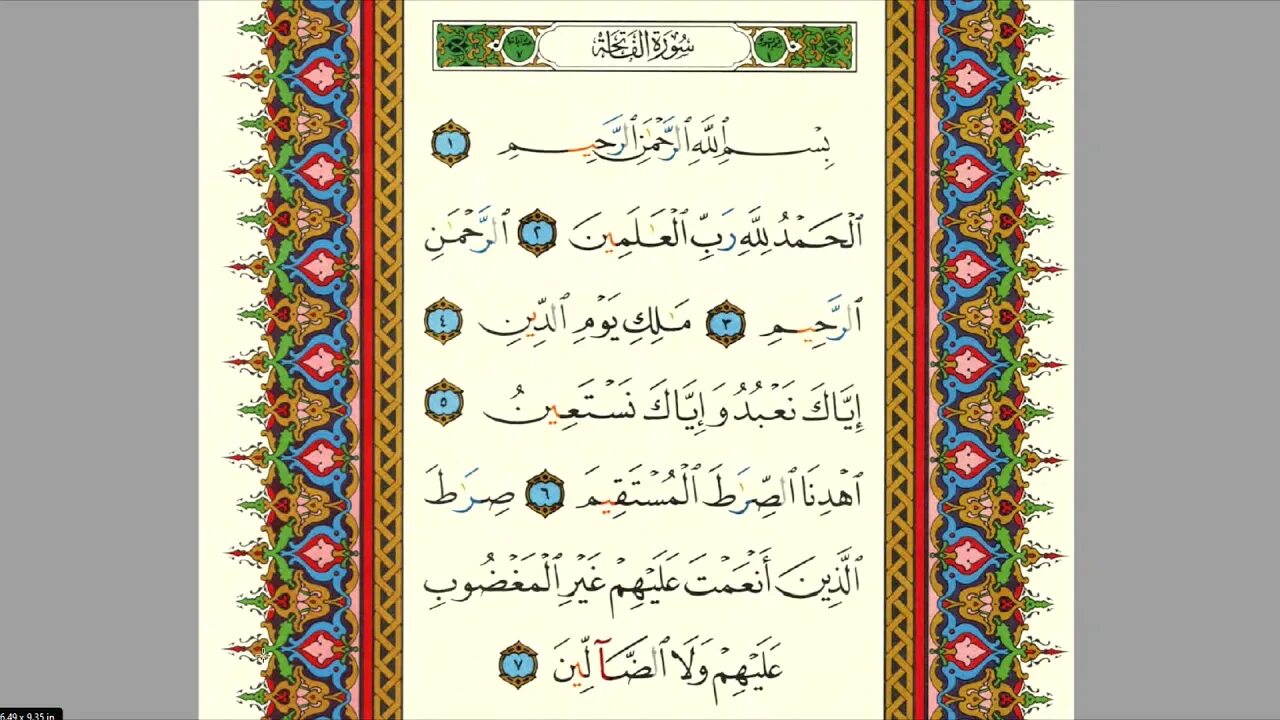 سُورَةُ الْفَاتِحَةِ
بِسْمِ ٱللَّهِ ٱلرَّحْمَٰنِ ٱلرَّحِيمِ ١
ٱلْحَمْدُ لِلَّهِ رَبِّ ٱلْعَٰلَمِينَ ٢ ٱلرَّحْمَٰنِ
ٱلرَّحِيمِ ٣ مَٰلِكِ يَوْمِ ٱلدِّينِ ٤
إِيَّاكَ نَعْبُدُ وَإِيَّاكَ نَسْتَعِينُ ٥
ٱهْدِنَا ٱلصِّرَٰطَ ٱلْمُسْتَقِيمَ ٦ صِرَٰطَ
ٱلَّذِينَ أَنْعَمْتَ عَلَيْهِمْ غَيْرِ ٱلْمَغْضُوبِ
عَلَيْهِمْ وَلَا ٱلضَّآلِّينَ ٧
6.49 x 9.35 in